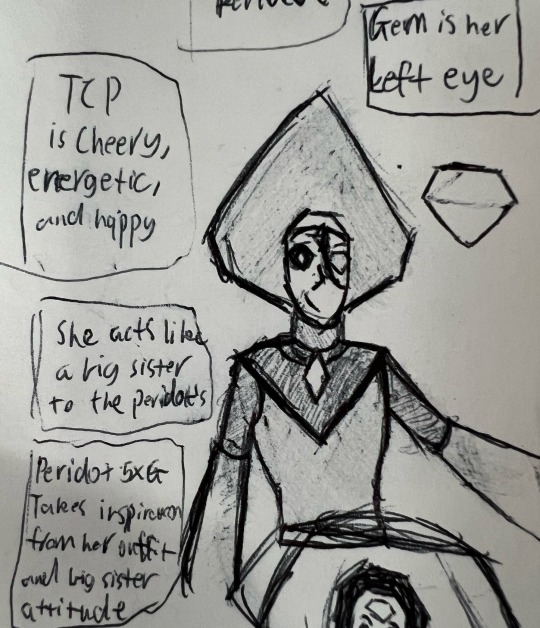 Gem is her
Left eye
TCP
is Cheery,
energetic,
and happy
She acts like
a big sister
to the peridot's
Peridot 5xG
Takes inspiration
from her outfit
and big sister
attitude